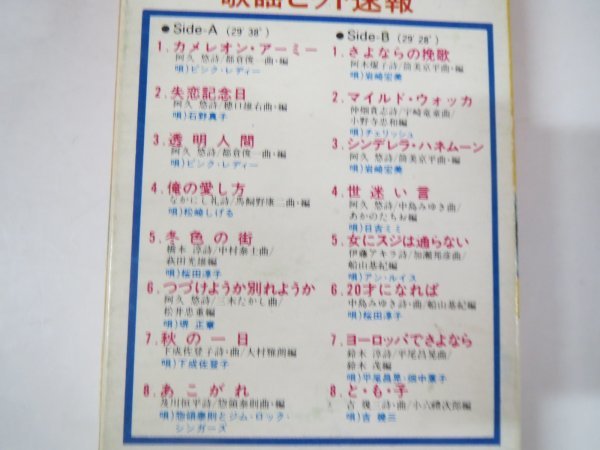 歌謡ヒット速報
● Side-A (29′38″)
1. カメレオン・アーミー
阿久 悠詩/都倉俊一曲・編
唄)ピンク・レディー
2. 失恋記念日
阿久 悠詩/穂口雄右曲・編
唄)石野真子
3. 透明人間
阿久 悠詩/都倉俊一曲・編
唄)ピンク・レディー
4. 俺の愛し方
なかにし礼詩/馬飼野康二曲・編
唄)松崎しげる
5. 冬色の街
橋本 淳詩/中村泰士曲/
萩田光雄編
唄)桜田淳子
6. つづけようか別れようか
阿久 悠詩/三木たかし曲/
松井忠重編
唄)堺 正章
7. 秋の一日
下成佐登子詩・曲/大村雅朗編
唄)下成佐登子
8. あこがれ
及川恒平詩/惣領泰則曲・編
唄)惣領泰則とジム・ロック・
シンガーズ
● Side-B (29′28″)
1. さよならの挽歌
阿木燿子詩/筒美京平曲・編
唄)岩崎宏美
2. マイルド・ウォッカ
仲畑貴志詩/宇崎竜童曲/
小野寺忠和編
唄)チェリッシュ
3. シンデレラ・ハネムーン
阿久 悠詩/筒美京平曲・編
唄)岩崎宏美
4. 世迷い言
阿久 悠詩/中島みゆき曲/
あかのたちお編
唄)日吉ミミ
5. 女にスジは通らない
伊藤アキラ詩/加瀬邦彦曲/
船山基紀編
唄)アン・ルイス
6. 20才になれば
中島みゆき詩・曲/船山基紀編
唄)桜田淳子
7. ヨーロッパでさよなら
鈴木 淳詩/平尾昌晃曲/
鈴木 茂編
唄)平尾昌晃・畑中葉子
8. と・も・子
吉 幾三詩・曲/小六禮次郎編
唄)吉 幾三